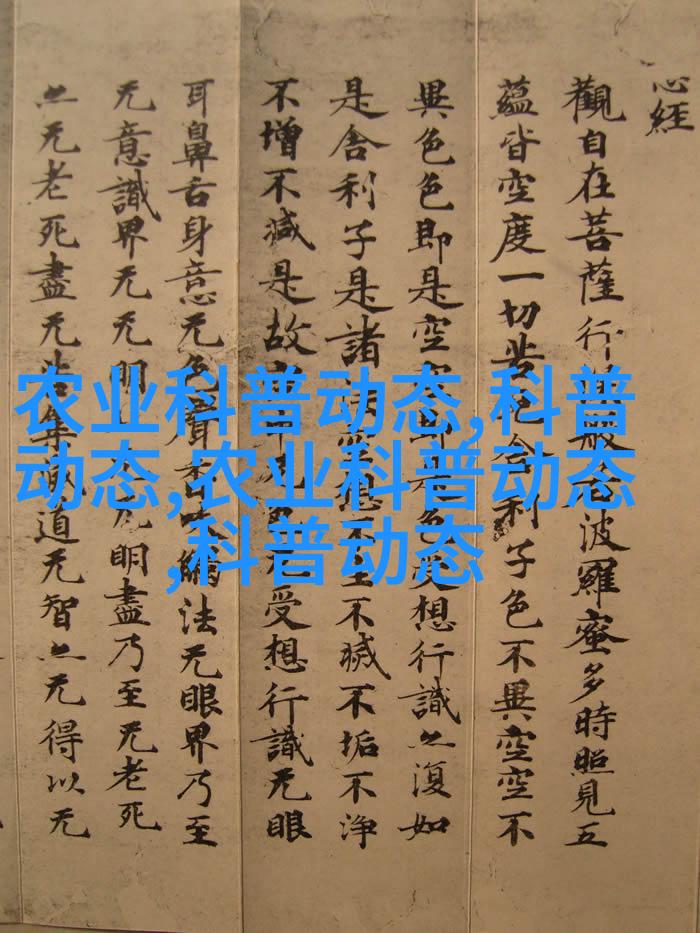 心經
觀自在菩薩行般波羅蜜多時照見五
蘊皆空度一切苦厄舍利子色不異空空不
異色色即是空空即是色受想行識亦復如
是舍利子是諸法空想不生不滅不垢不淨
不增不減是故空中无色无受想行識无眼
耳鼻舌身意无色聲香味觸法无眼界乃至
无意識界无无明无明盡乃至无老死
亦无老死盡无苦集滅道无智亦无得以无
农业科普动态,科普
动态,农业科普动态
,科普动态